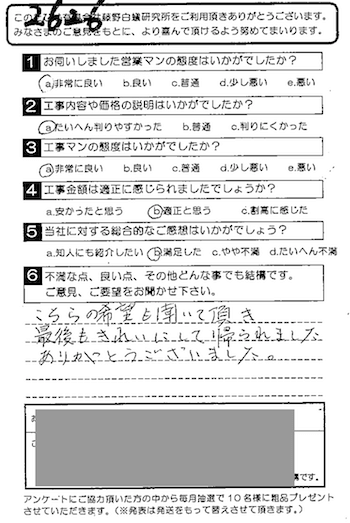 2626
この度は有限会社藤野白蟻研究所をご利用頂きありがとうございます。
みなさまのご意見をもとに、より喜んで頂けるよう努めてまいります。
1 お伺いしました営業マンの態度はいかがでしたか？
a.非常に良い b.良い c.普通 d.少し悪い e.悪い
2 工事内容や価格の説明はいかがでしたか？
a.たいへん判りやすかった b.普通 c.判りにくかった
3 工事マンの態度はいかがでしたか？
a.非常に良い b.良い c.普通 d.少し悪い e.悪い
4 工事金額は適正に感じられましたでしょうか？
a.安かったと思う b.適正と思う c.割高に感じた
5 当社に対する総合的なご感想はいかがでしょう？
a.知人にも紹介したい b.満足した c.やや不満 d.たいへん不満
6 不満な点、良い点、その他どんな事でも結構です。
ご意見、ご要望をお聞かせ下さい。
こちらの希望も聞いて頂き
最後もきれいにして帰られました
ありがとうございました。
構です。
アンケートにご協力頂いた方の中から毎月抽選で10名様に粗品プレゼント
させていただきます。（※発表は発送をもって替えさせて頂きます。）